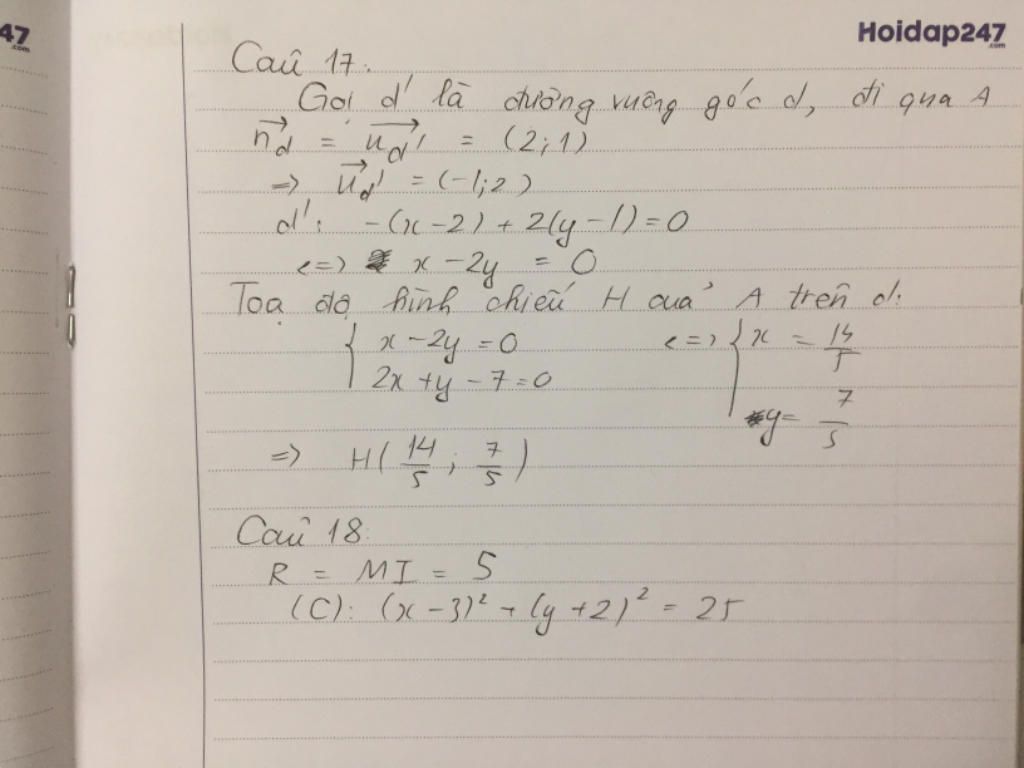 47
.com
Hoidap247
.com
Câu 17:
Gọi d' là đường vuông góc d, đi qua A
n_d = u_d' = (2;1)
=> u_d' = (-1;2)
d': -(x-2) + 2(y-1) = 0
<=> x - 2y = 0
Toạ độ hình chiếu H của A trên d:
{ x - 2y = 0 <=> { x = 14/5
2x + y - 7 = 0
y = 7/5
=> H(14/5; 7/5)
Câu 18:
R = MI = 5
(C): (x-3)² + (y+2)² = 25